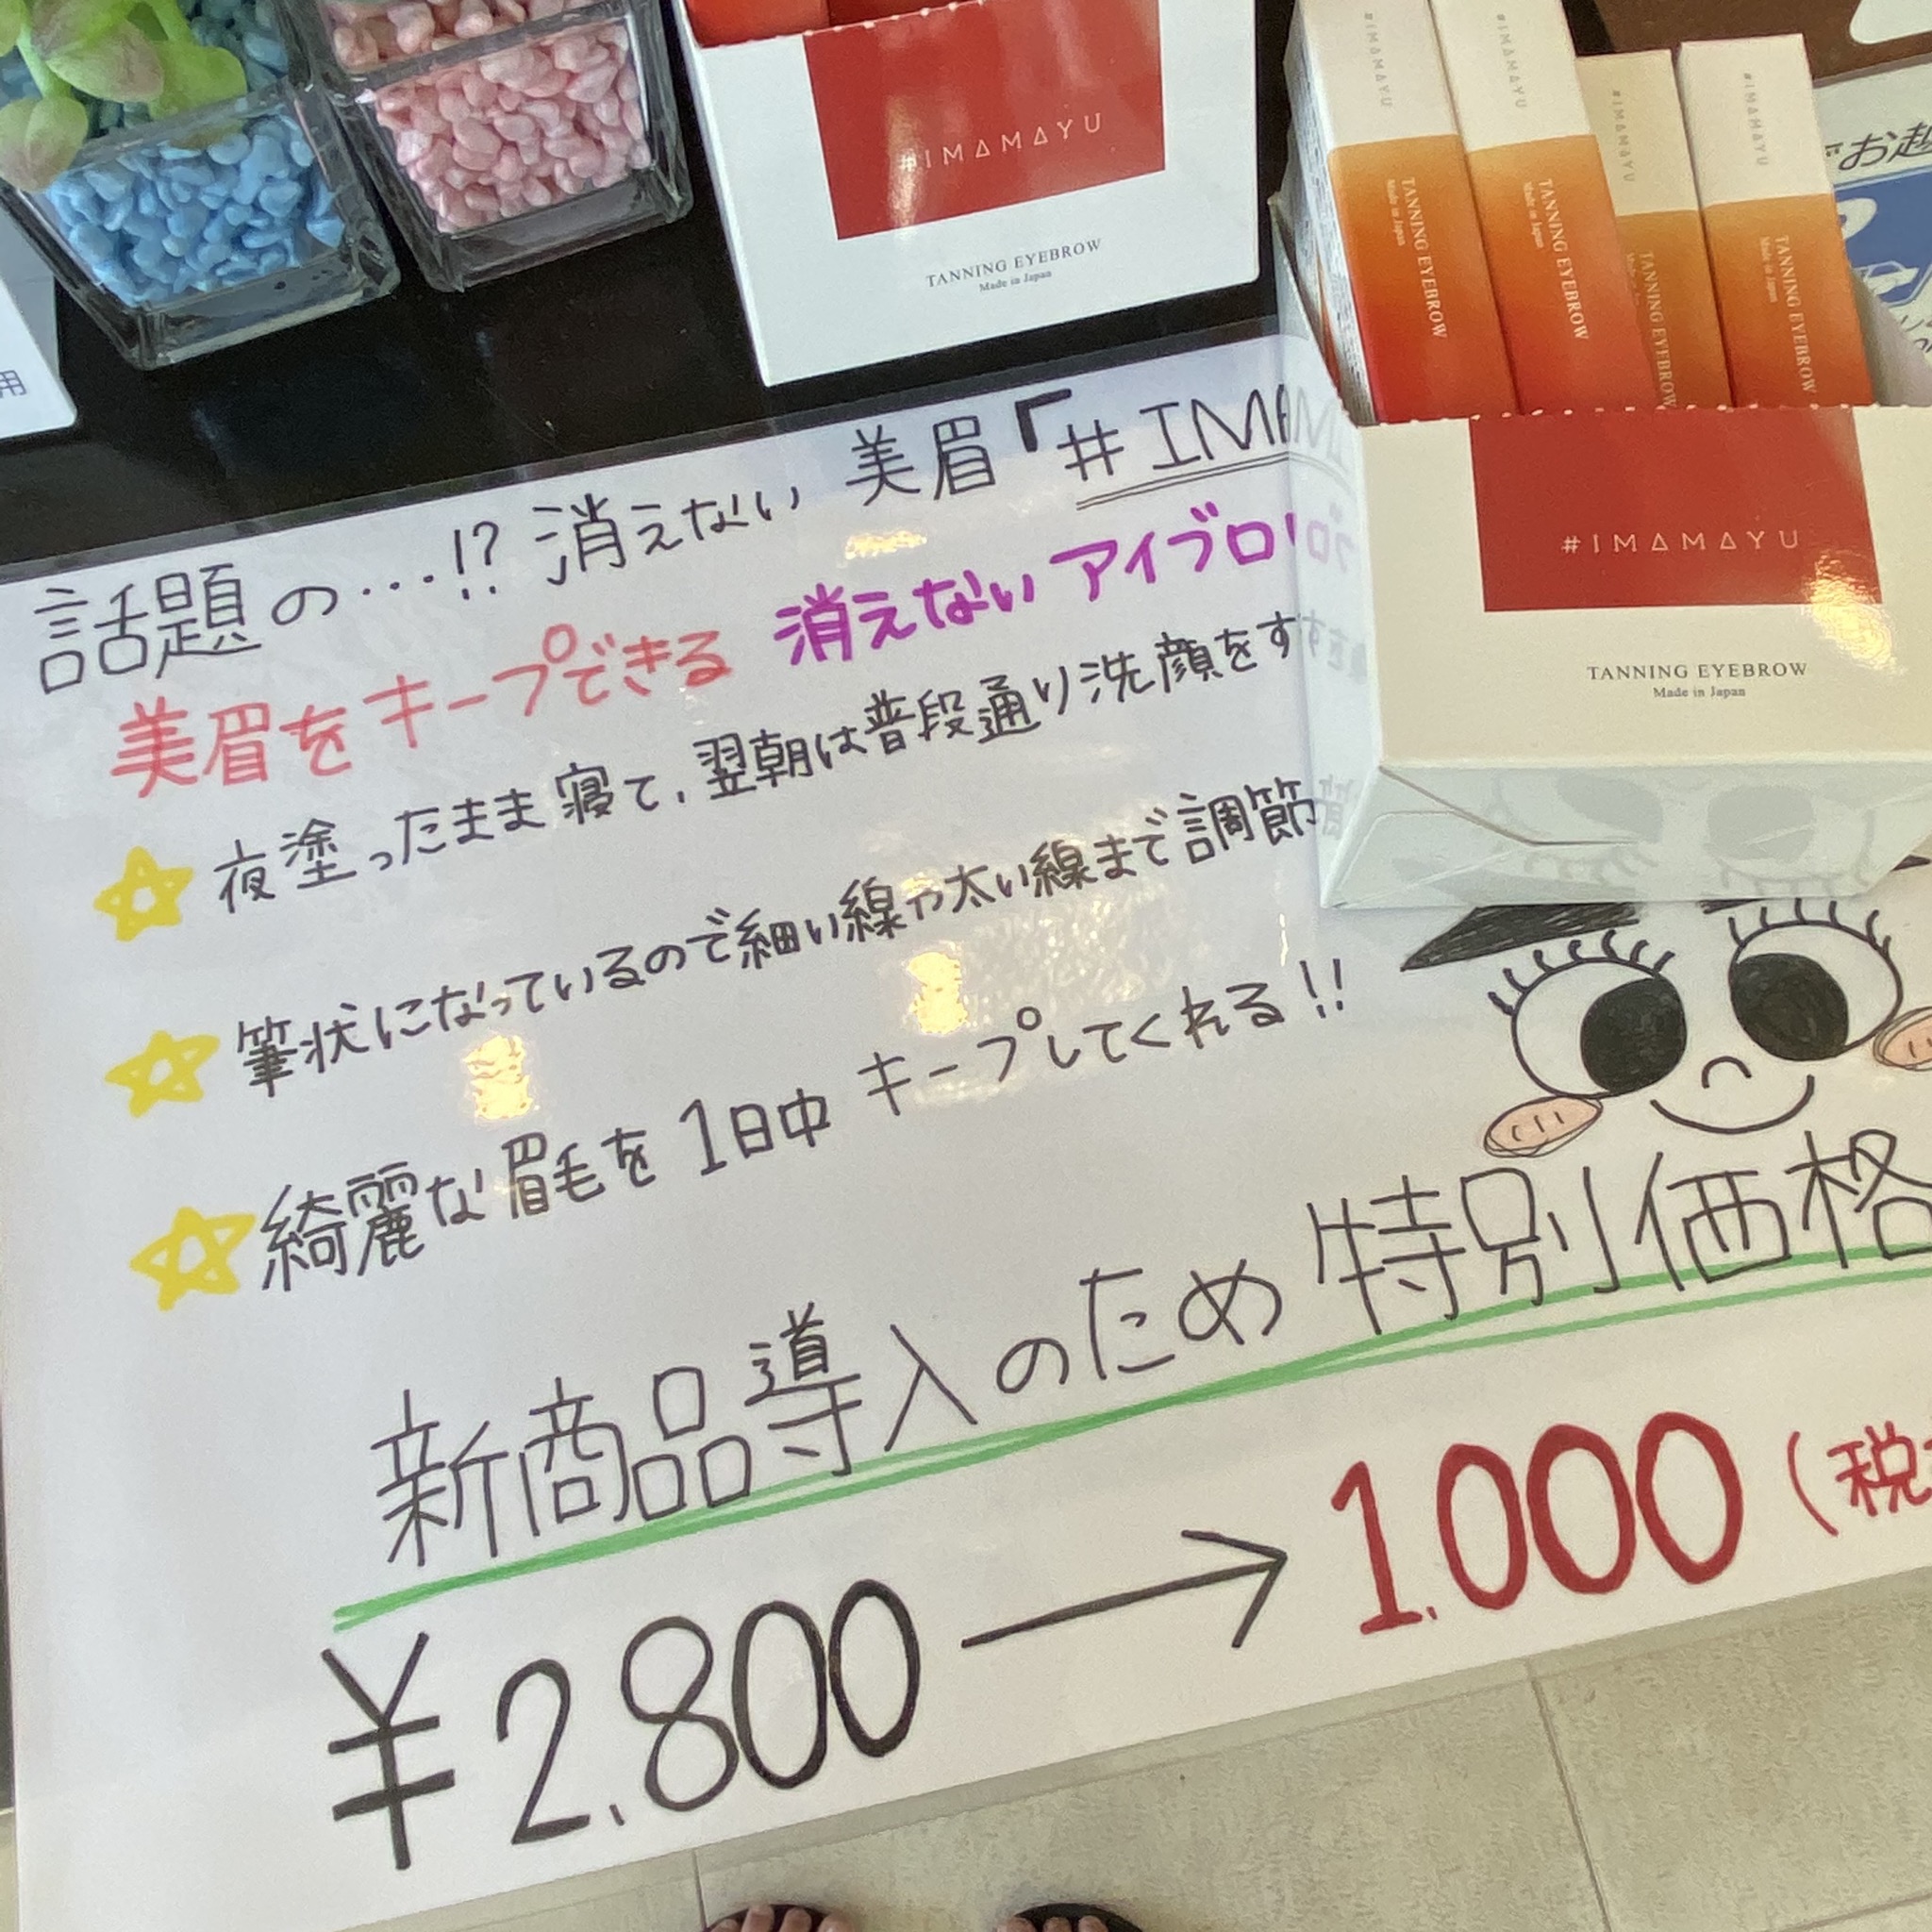 #IMAMAYU
TANNING EYEBROW
Made in Japan
#IMAMAYU
TANNING EYEBROW
Made in Japan
#IMAMAYU
TANNING EYEBROW
Made in Japan
#IMAMAYU
TANNING EYEBROW
#IMAMAYU
TANNING EYEBROW
Made in Japan
お越
用
#IMAMAYU
TANNING EYEBROW
Made in Japan
話題の…!? 消えない 美眉「#IMA
美眉をキープできる 消えないアイブロ
☆ 夜塗ったまま寝て、翌朝は普段通り洗顔をす
☆ 筆状になっているので細い線や太い線まで調節
☆ 綺麗な眉毛を1日中 キープしてくれる!!
新商品導入のため特別価格
¥2,800 → 1,000 (税